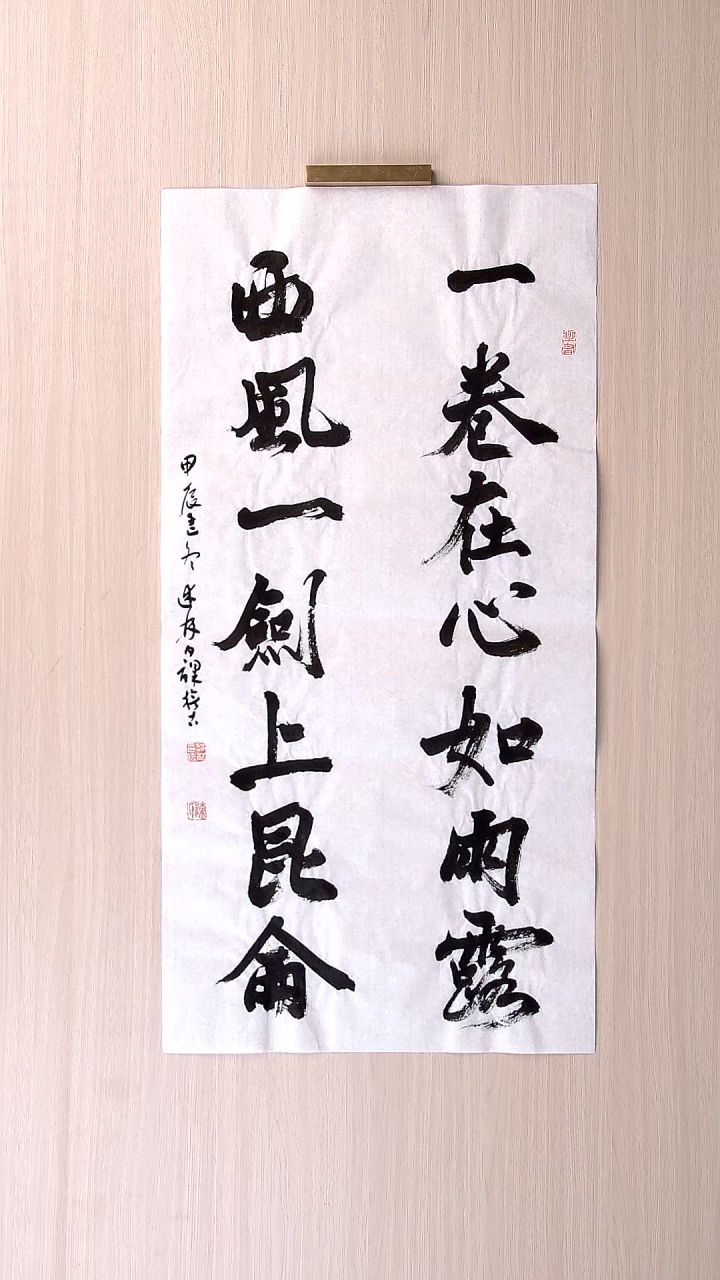 一卷在心如雨露
西風一劍上昆侖
甲辰孟冬 日課